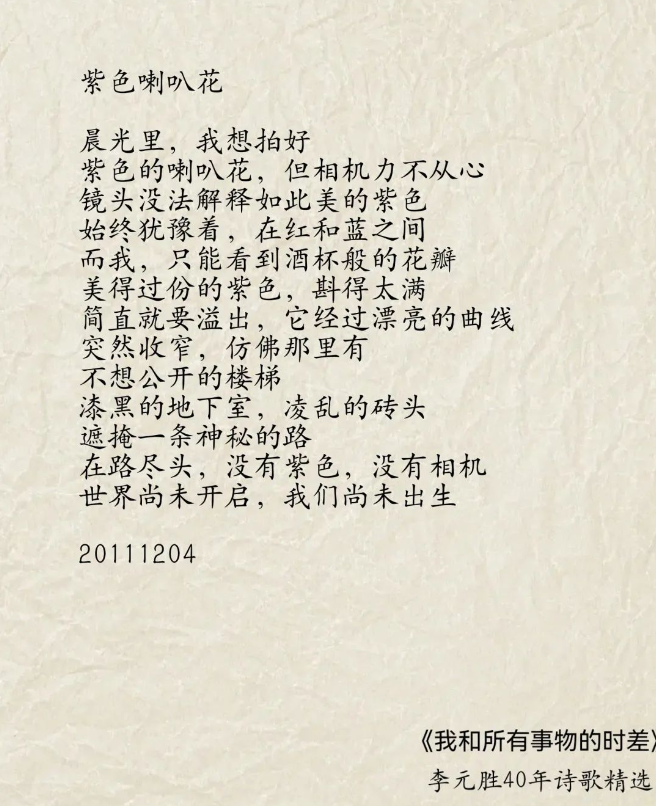 紫色喇叭花
晨光里，我想拍好
紫色的喇叭花，但相机力不从心
镜头没法解释如此美的紫色
始终犹豫着，在红和蓝之间
而我，只能看到酒杯般的花瓣
美得过份的紫色，斟得太满
简直就要溢出，它经过漂亮的曲线
突然收窄，仿佛那里有
不想公开的楼梯
漆黑的地下室，凌乱的砖头
遮掩一条神秘的路
在路尽头，没有紫色，没有相机
世界尚未开启，我们尚未出生
20111204
《我和所有事物的时差》
李元胜40年诗歌精选